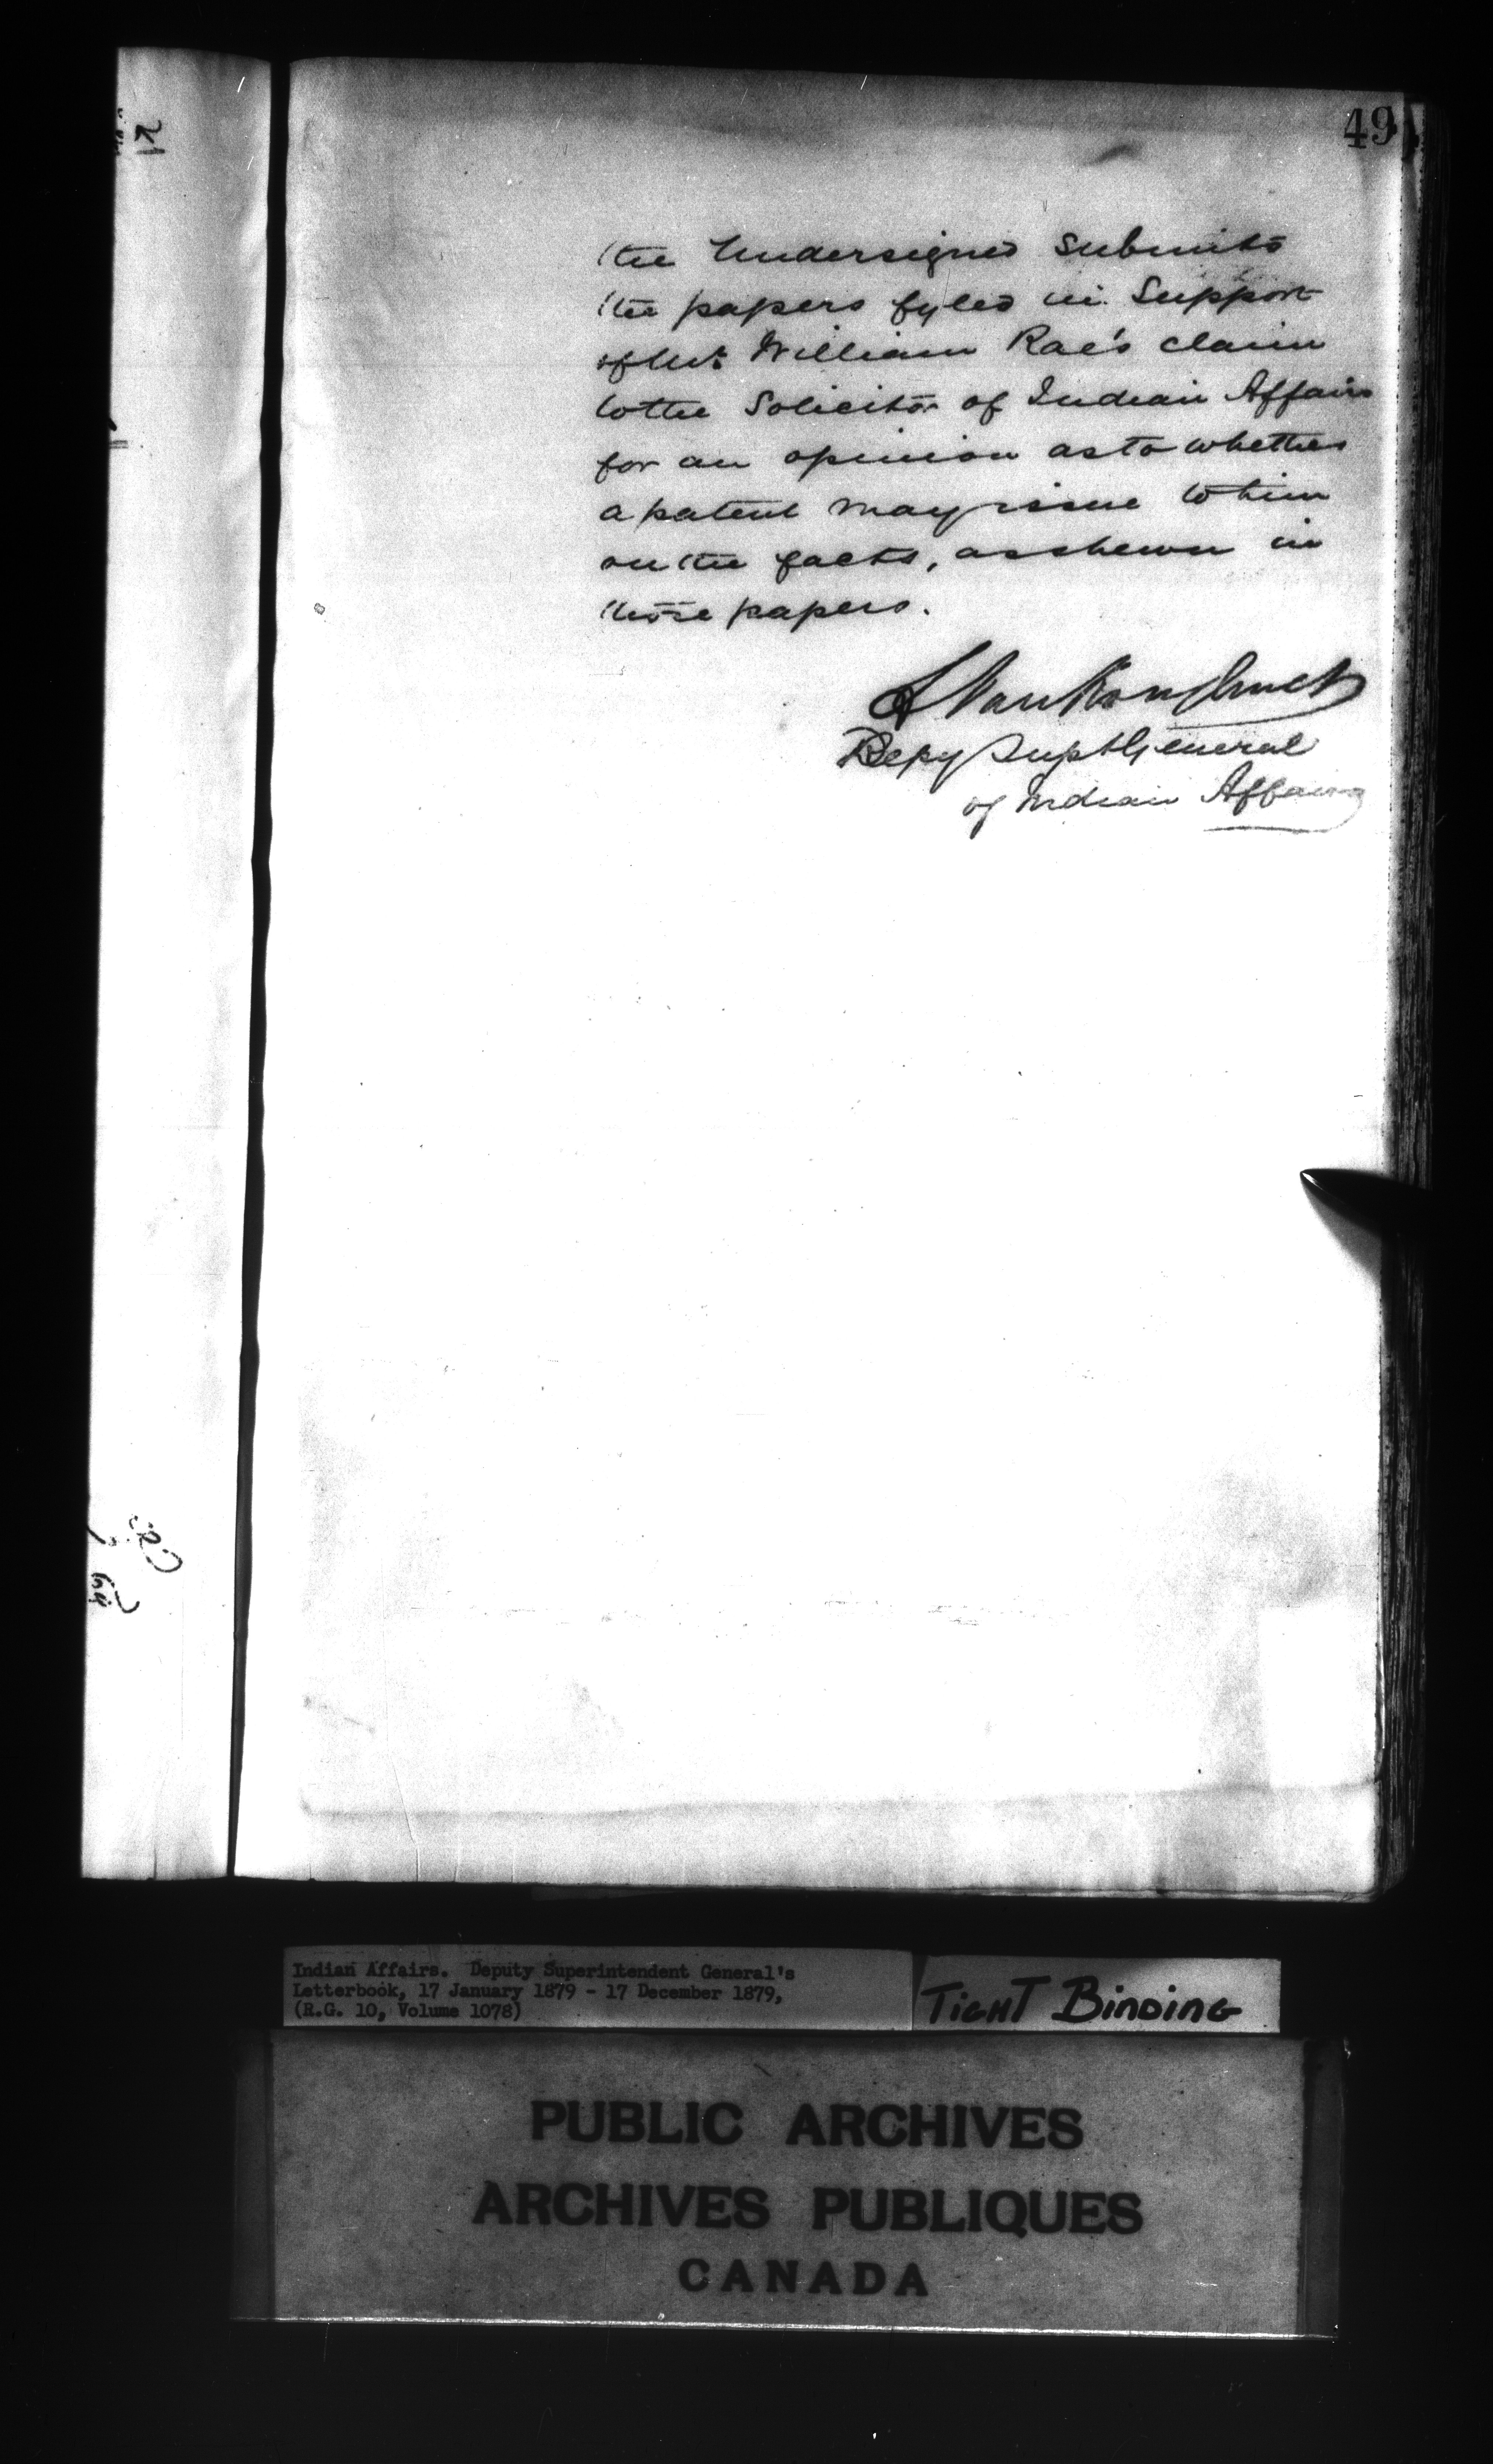 49
the Undersigned submits
the papers fyled in Support
of Mr. William Rae's claim
to the Solicitor of Indian Affairs
for an opinion as to whether
a patent may issue to him
on the facts, as shewn in
those papers.
L VanKoughnet
Depy Supt General
of Indian Affairs
Indian Affairs. Deputy Superintendent General's
Letterbook, 17 January 1879 - 17 December 1879,
(R.G. 10, Volume 1078)
TIGHT BINDING
PUBLIC ARCHIVES
ARCHIVES PUBLIQUES
CANADA